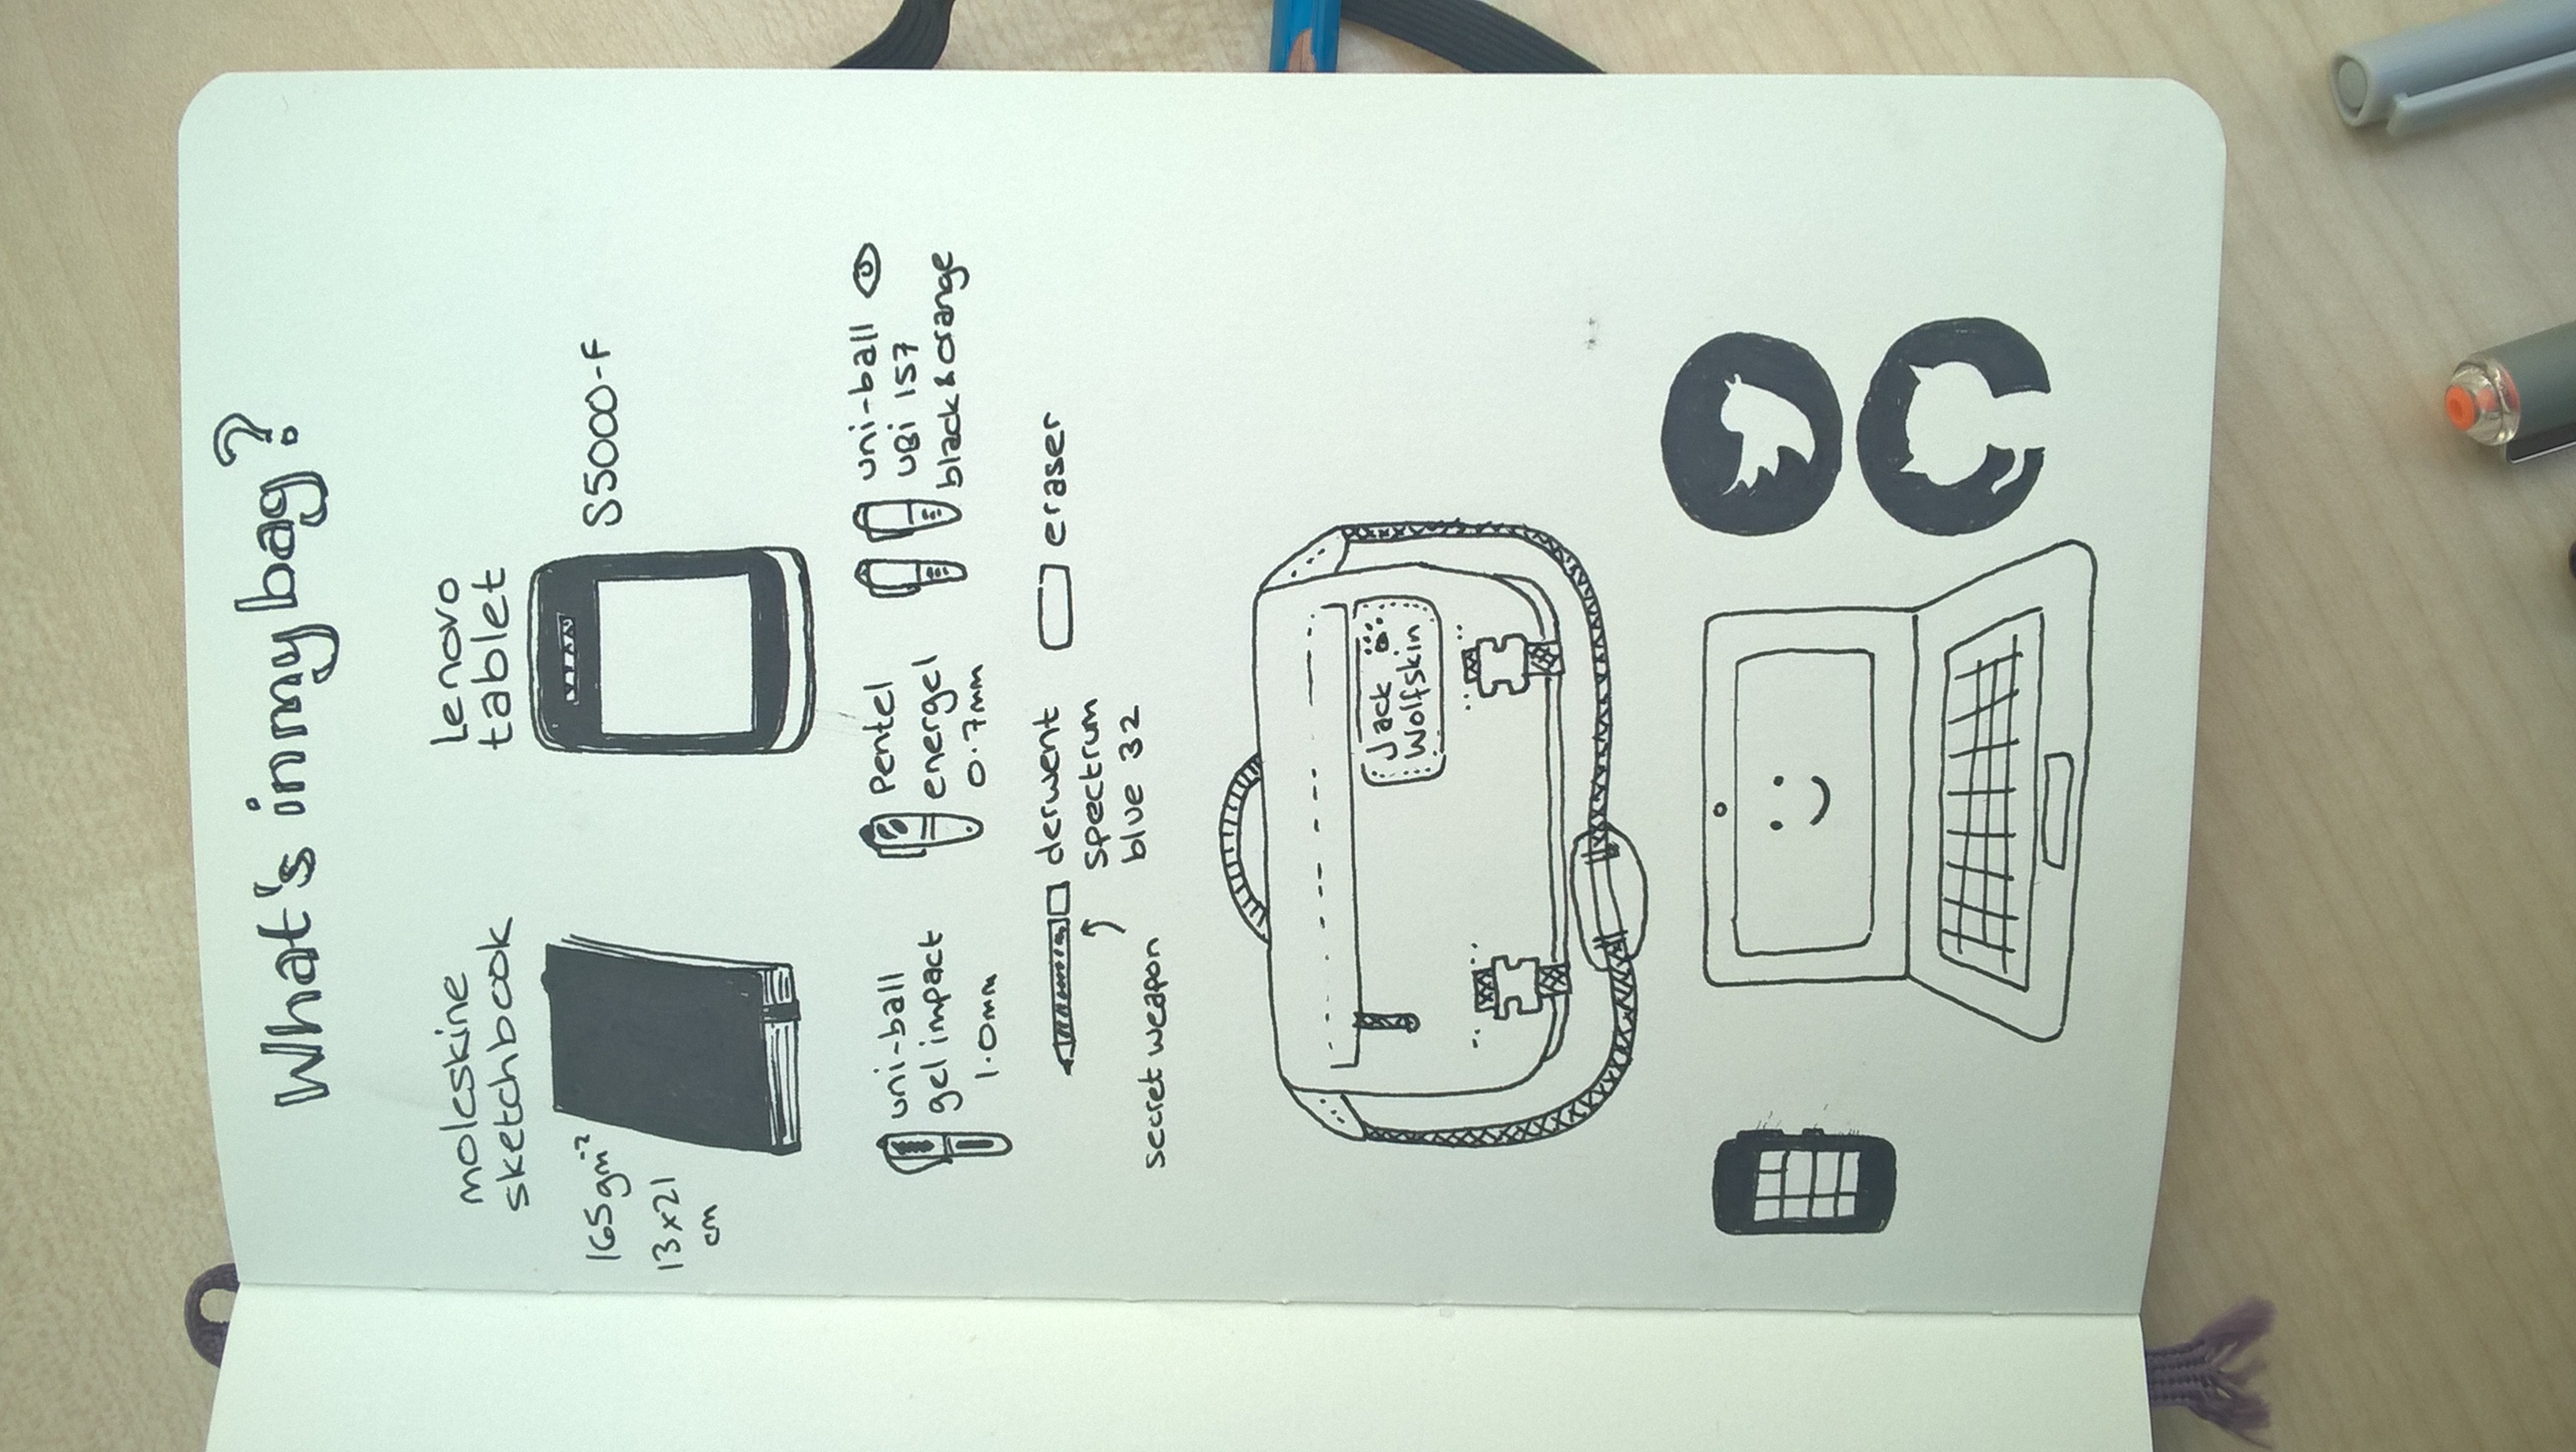 What's in my bag?
moleskine
sketchbook
165gm⁻²
13x21
cm
Lenovo
tablet
S5000-F
uni-ball
gel impact
1.0mm
Pentel
energel
0.7mm
uni-ball
UBi 157
black & orange
derwent
spectrum
blue 32
secret weapon
eraser
Jack
Wolfskin